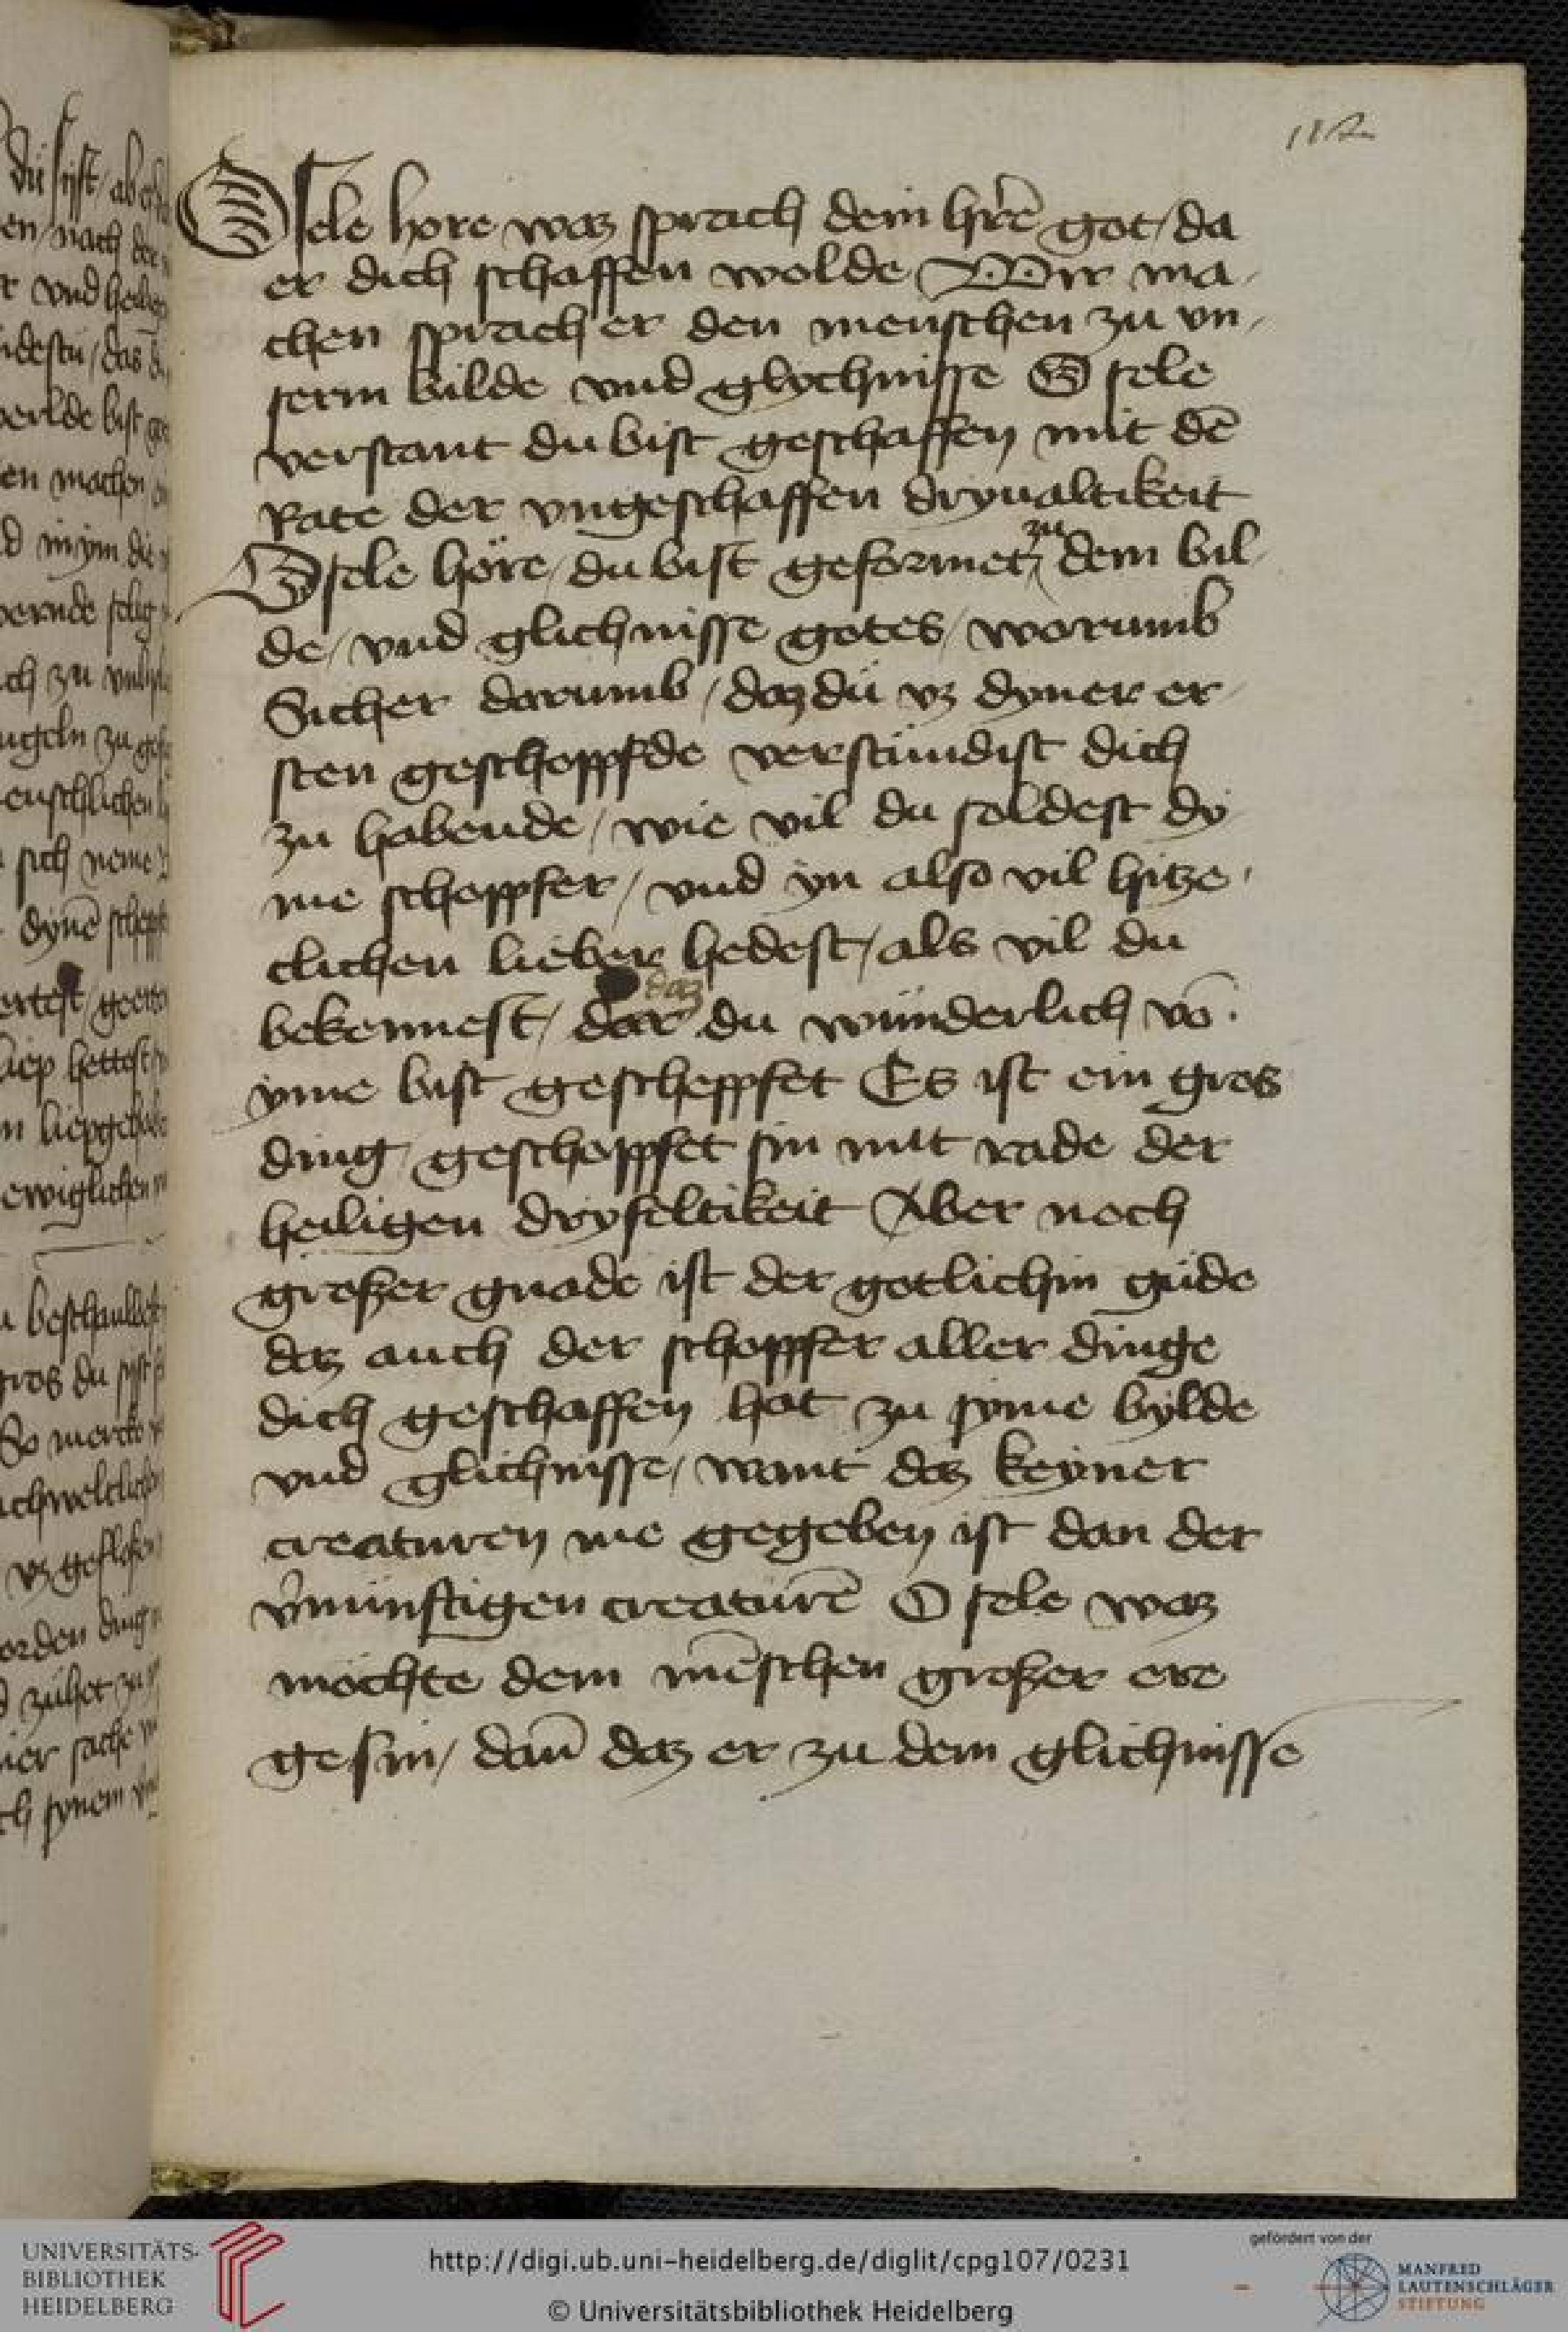 112
O sele hore waz sprach dein hr̄e got / da
er dich schaffen wolde Wir ma-
chen sprach er den menschen zu vn-
serm bilde vnd glychnisse O sele
verstant du bist geschaffen mit dē
Rate der vngeschaffen dryualtikeit
O sele höre / du bist geformet zu dem bil-
de / vnd glichnisse gotes / worumb
Sicher darumb / daz dü vz dyner er-
sten geschoppfde verstündist dich
zu habende / wie vil du soldest dy-
me schoppfer / vnd yn also vil hitze-
clichen lieber hedest / als vil du
bekennest / dar daz du wünderlich vō
yme bist gescheppfet Es ist ein gros
ding geschoppfet sin mit rade der
heiligen dryfeltikeit Aber noch
großer gnade ist der gotlichin güde
daz auch der schoppfer aller dinge
dich geschaffen hat zu syme bylde
vnd glichnisse / want daz keyner
creaturen me gegeben ist dan der
v̄nünftigen creatürē O sele waz
möchte dem mēschen großer ere
gesin / dan̄ daz er zu dem glichnisse
UNIVERSITÄTS-
BIBLIOTHEK
HEIDELBERG
http://digi.ub.uni-heidelberg.de/diglit/cpg107/0231
© Universitätsbibliothek Heidelberg
gefördert von der
MANFRED
LAUTENSCHLÄGER
STIFTUNG